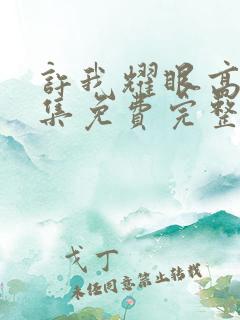 許我耀眼高
集免費完整
戈丁
未经同意禁止转载